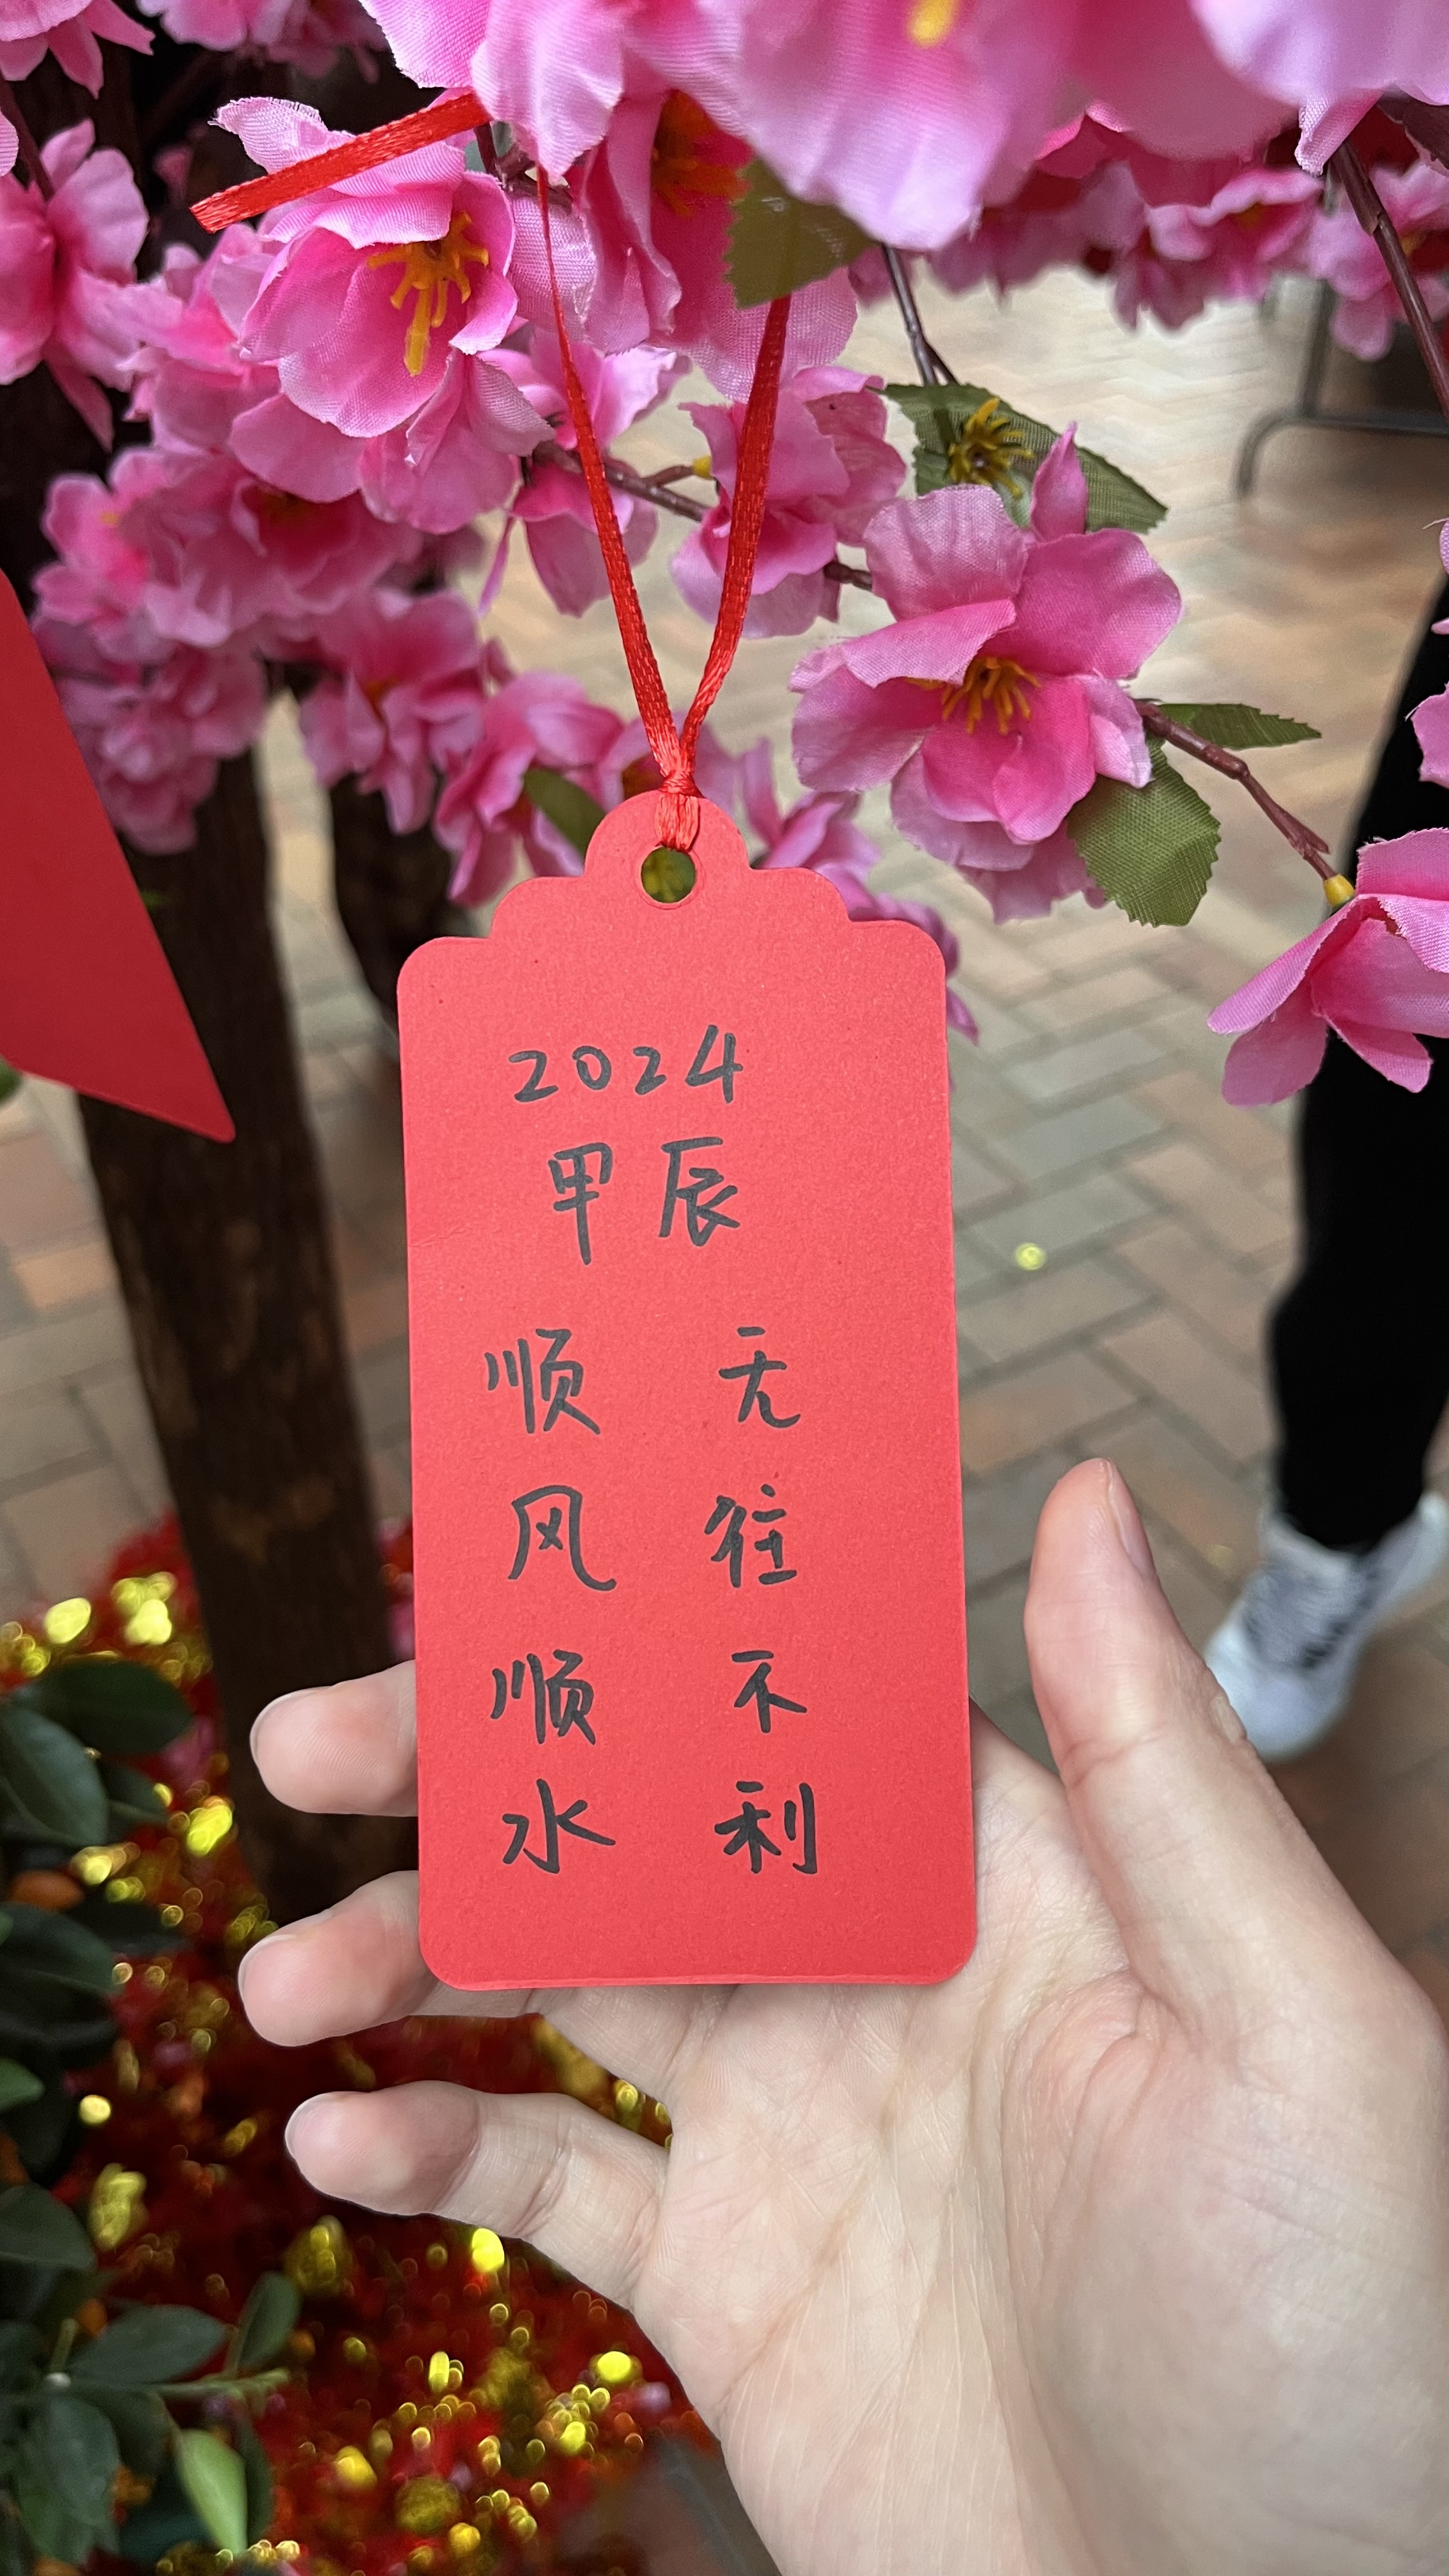 2024
甲辰
顺风顺水
无往不利